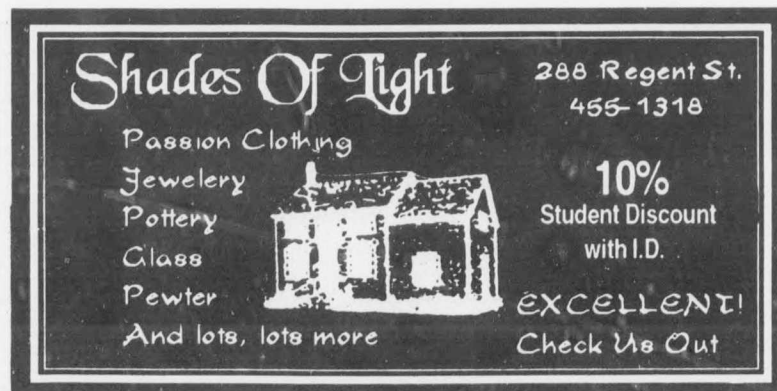 Shades Of Light
Passion Clothing
Jewelery
Pottery
Glass
Pewter
And lots, lots more
288 Regent St.
455-1318
10%
Student Discount
with I.D.
EXCELLENT!
Check Us Out